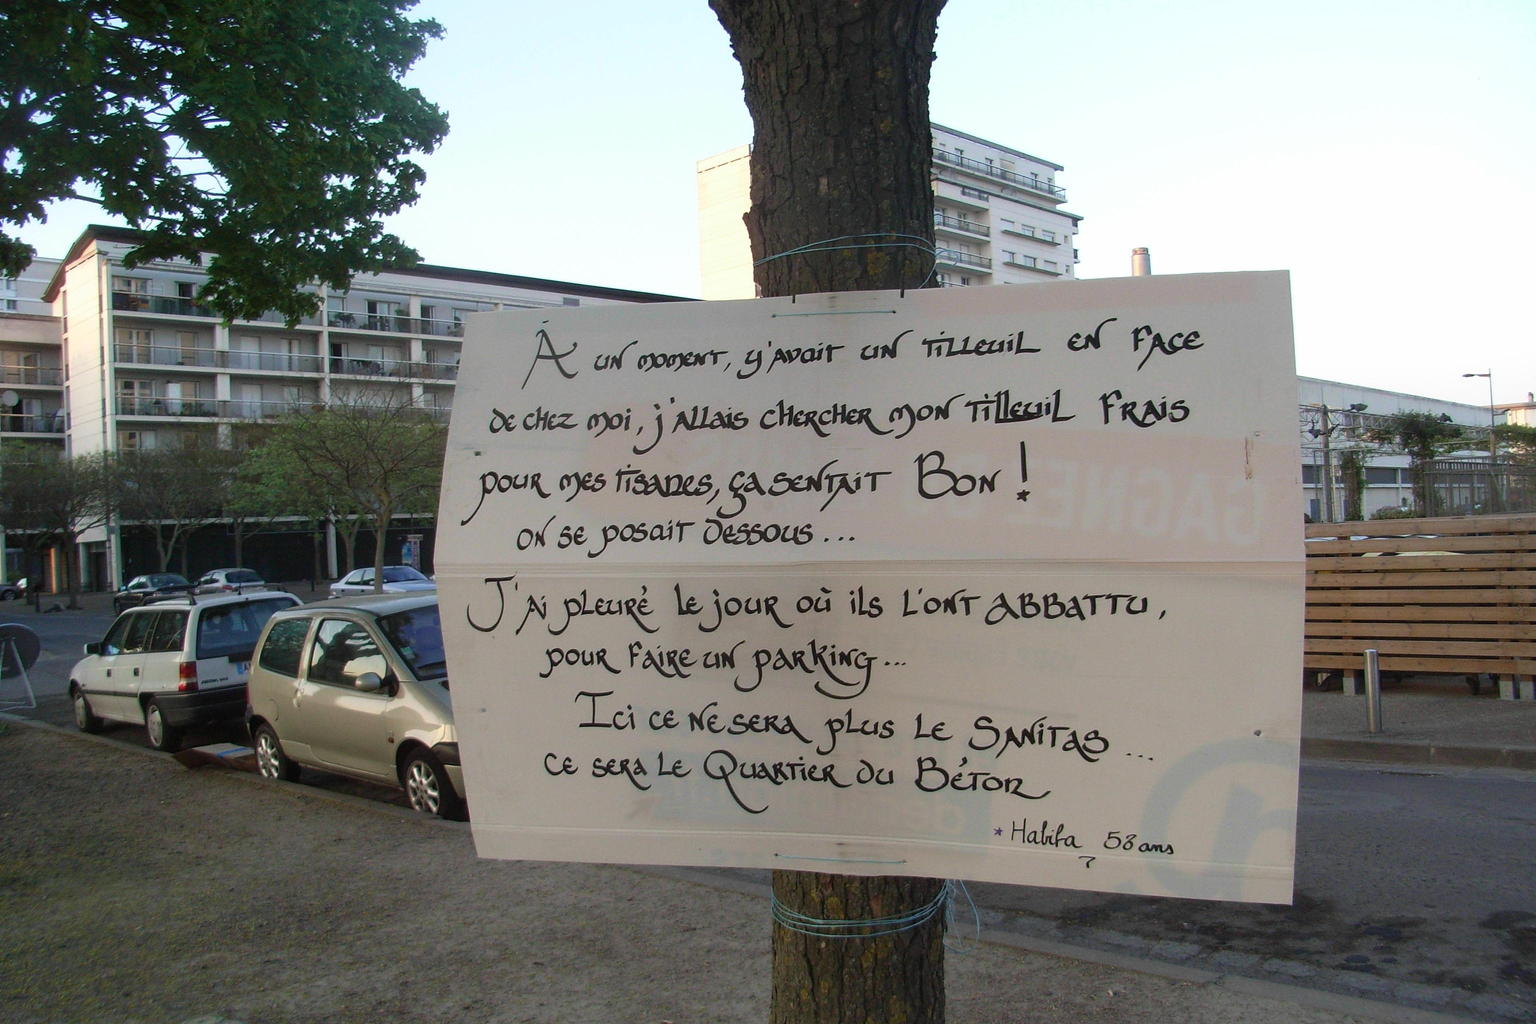 À un moment, y'avait un tilleuil en face
de chez moi, j'allais chercher mon tilleuil frais
pour mes tisanes, ça sentait Bon !
on se posait dessous...
J'ai pleuré le jour où ils l'ont abbattu,
pour faire un parking...
Ici ce ne sera plus le Sanitas...
ce sera le Quartier du Béton
* Habiba 58 ans
GAGNEZ